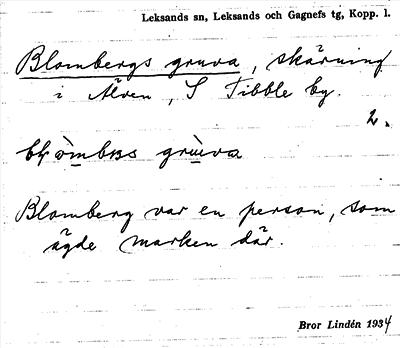 Leksands sn, Leksands och Gagnefs tg, Kopp. l.
Blombergs gruva, skärning
i Älven, S Tibble by.
2.
gruva
Blomberg var en person, som
ägde marken där.
Bror Lindén 1934